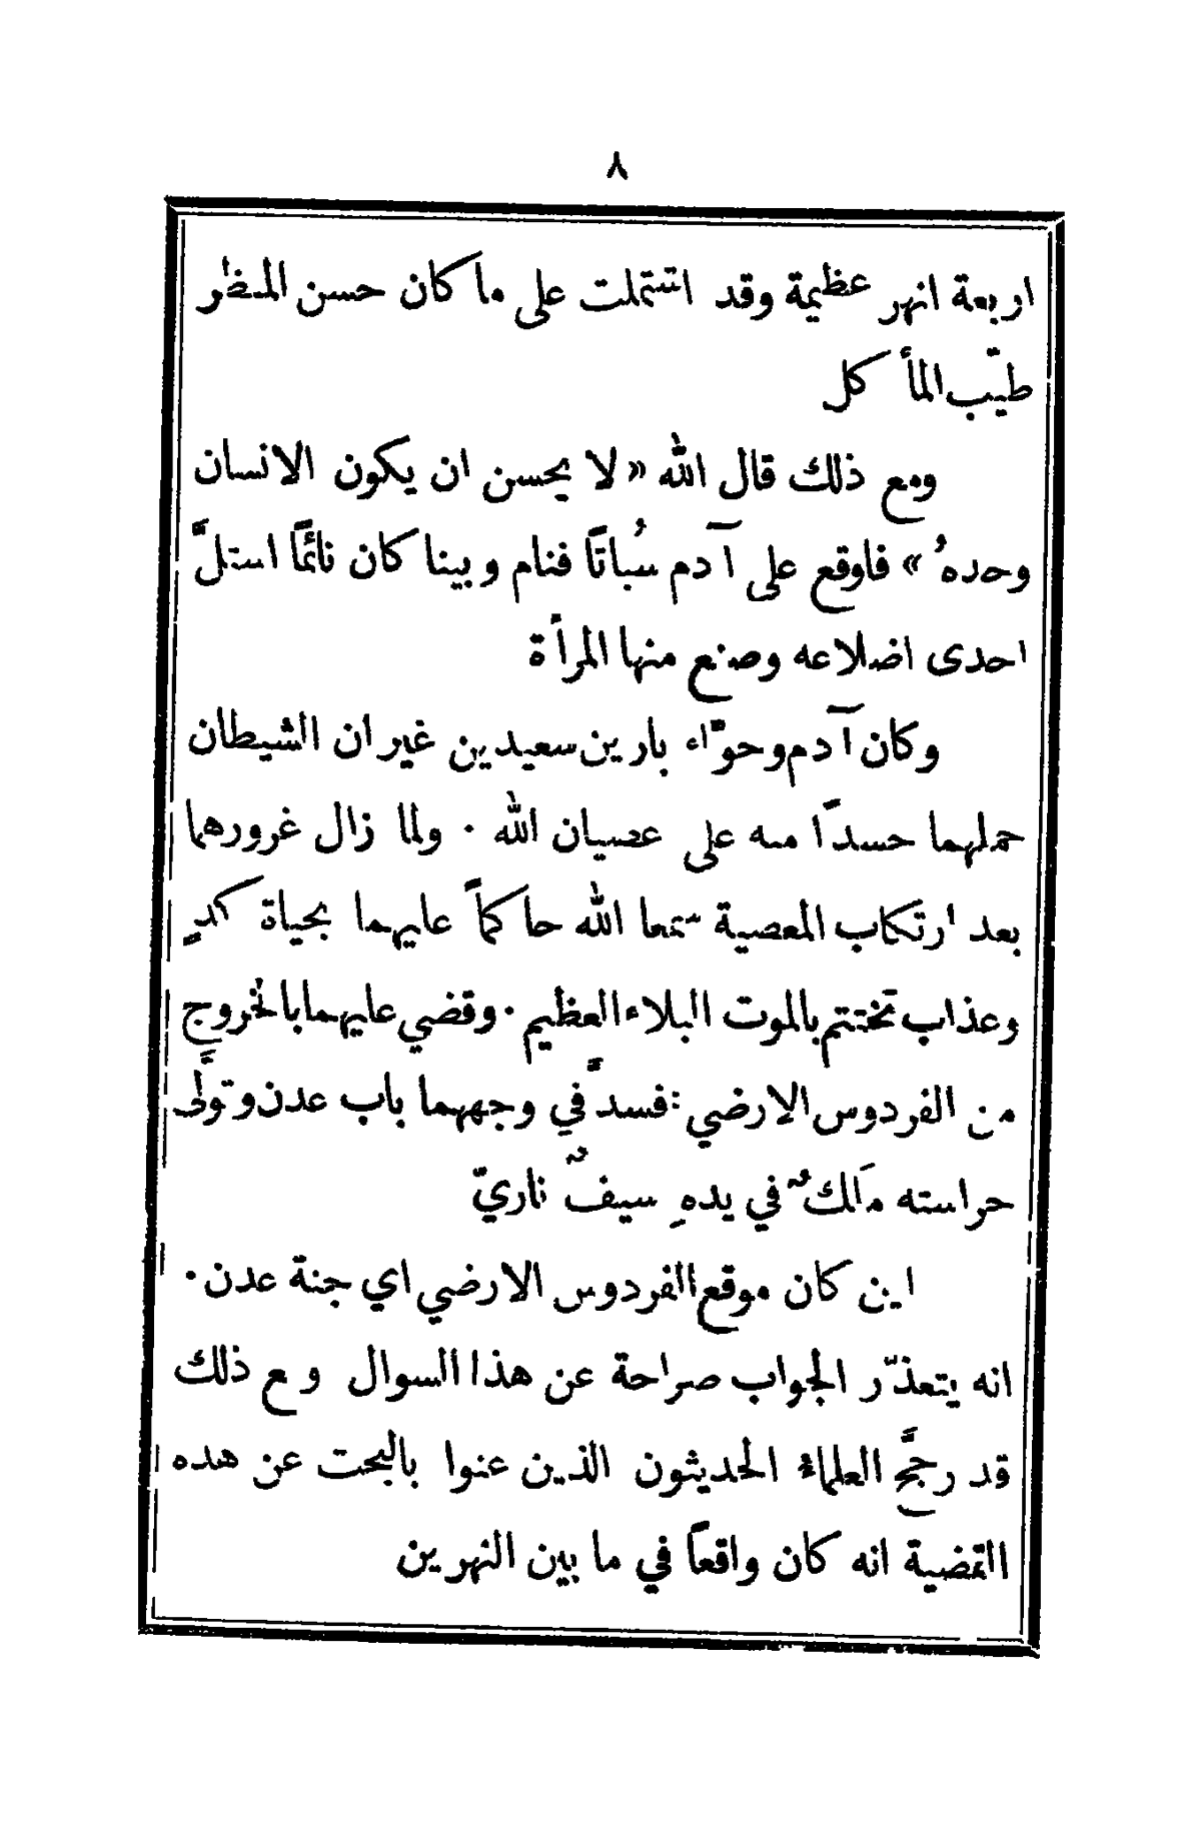 ٨
اربعة انهر عظيمة وقد اشتملت على ما كان حسن المنظر
طيّب المأكل
ومع ذلك قال الله « لا يحسن ان يكون الانسان
وحدهُ » فاوقع على آدم سُباتًا فنام وبينا كان نائمًا استلَّ
احدى اضلاعه وصنع منها المرأة
وكان آدم وحوّاء بارين سعيدين غير ان الشيطان
حملهما حسدًا منه على عصيان الله . ولما زال غرورهما
بعد ارتكاب المعصية سمعا الله حاكمًا عليهما بحياة كدٍ
وعذاب تختتم بالموت البلاء العظيم . وقضي عليهما بالخروج
من الفردوس الارضي : فسدَّ في وجههما باب عدن وتولَّى
حراسته مَلَكٌ في يدهِ سيفٌ ناريّ
اين كان موقع الفردوس الارضي اي جنة عدن .
انه يتعذّر الجواب صراحة عن هذا السوال و ع ذلك
قد رجَّح العلماءُ الحديثون الذين عنوا بالبحث عن هذه
القضية انه كان واقعاً في ما بين النهرين